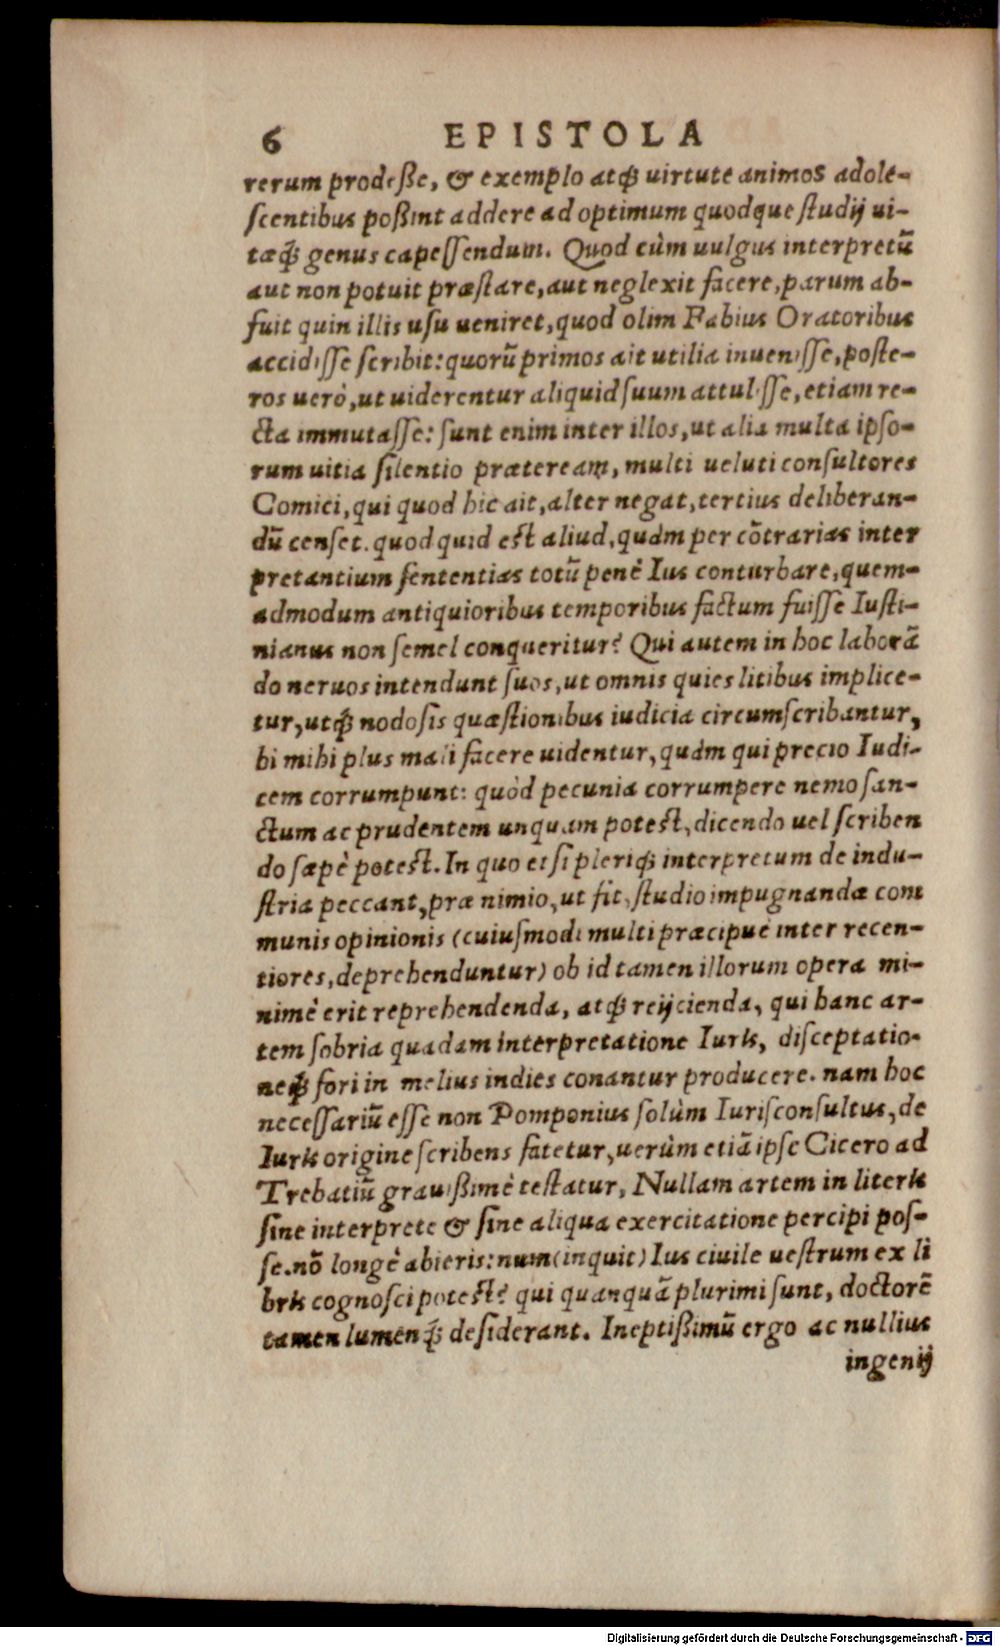 6 EPISTOLA
rerum prodeße, & exemplo atq́; uirtute animos adole-
ſcentibus poßint addere ad optimum quodque ſtudij ui-
tæq́; genus capeſſendum. Quod cùm uulgus interpretũ
aut non potuit præſtare, aut neglexit facere, parum ab-
fuit quin illis uſu ueniret, quod olim Fabius Oratoribus
accidiſſe ſcribit: quorũ primos ait utilia inueniſſe, poſte-
ros uerò, ut uiderentur aliquid ſuum attuliſſe, etiam re-
cta immutaſſe: ſunt enim inter illos, ut alia multa ipſo-
rum uitia ſilentio præteream, multi ueluti conſultores
Comici, qui quod hic ait, alter negat, tertius deliberan-
dũ cenſet. quod quid eſt aliud, quàm per cõtrarias inter
pretantium ſententias totũ penè Ius conturbare, quem-
admodum antiquioribus temporibus factum fuiſſe Iuſti-
nianus non ſemel conqueritur? Qui autem in hoc laborã
do neruos intendunt ſuos, ut omnis quies litibus implice-
tur, utq́; nodoſis quæſtionibus iudicia circumſcribantur,
hi mihi plus mali facere uidentur, quàm qui precio Iudi-
cem corrumpunt: quòd pecunia corrumpere nemo ſan-
ctum ac prudentem unquam poteſt, dicendo uel ſcriben
do ſæpè poteſt. In quo etſi pleriq́; interpretum de indu-
ſtria peccant, præ nimio, ut fit, ſtudio impugnandæ com
munis opinionis (cuiuſmodi multi præcipuè inter recen-
tiores, deprehenduntur) ob id tamen illorum opera mi-
nimè erit reprehendenda, atq́; reijcienda, qui hanc ar-
tem ſobria quadam interpretatione Iuris, diſceptatio-
neq́; fori in melius indies conantur producere. nam hoc
neceſſariũ eſſe non Pomponius ſolùm Iuriſconſultus, de
Iuris origine ſcribens fatetur, uerùm etiã ipſe Cicero ad
Trebatiũ grauißimè teſtatur, Nullam artem in literis
ſine interprete & ſine aliqua exercitatione percipi poſ-
ſe. nõ longè abieris: num (inquit) Ius ciuile ueſtrum ex li
bris cognoſci poteſt? qui quanquã plurimi ſunt, doctorẽ
tamen lumenq́; deſiderant. Ineptißimũ ergo ac nullius
ingenij
Digitalisierung gefördert durch die Deutsche Forschungsgemeinschaft - DFG